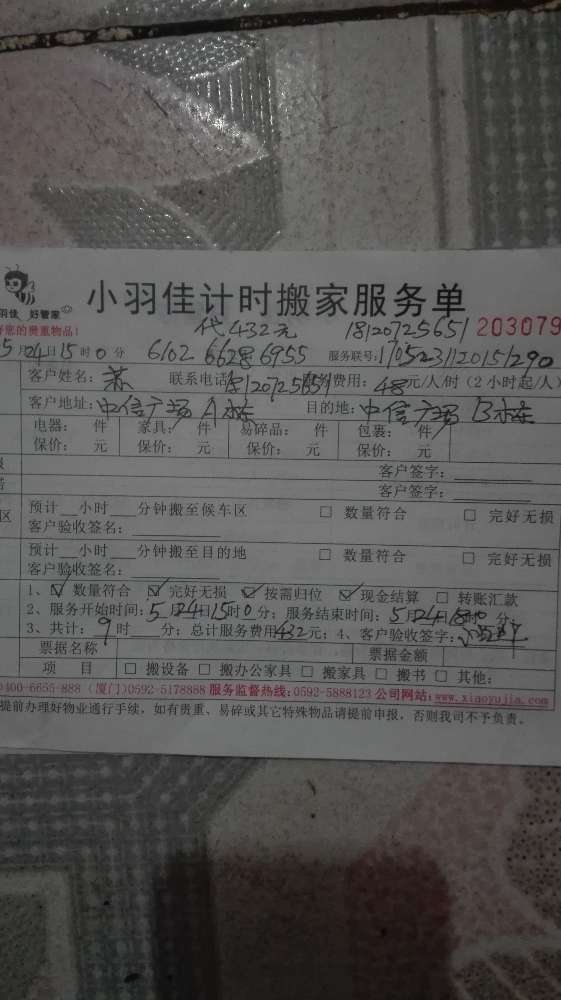 小羽佳计时搬家服务单
羽佳 好管家
好您的贵重物品!
代432元 18120725651 203079
5月04日15时0分 6102 6628 6955 服务联号:1705231120151290
客户姓名:苏 联系电话 18120725651 费用:48元/人/时(2小时起/人)
客户地址:中信广场A栋 目的地:中信广场B栋
电器: 件 家具: 件 易碎品: 件 包裹: 件
保价: 元 保价: 元 保价: 元 保价: 元
客户签字:
客户签字:
区 预计__小时__分钟搬至候车区 □ 数量符合 □ 完好无损
客户验收签名:
预计__小时__分钟搬至目的地 □ 数量符合 □ 完好无损
客户验收签名:
1、☑ 数量符合 ☑ 完好无损 ☑ 按需归位 ☑ 现金结算 □ 转账汇款
2、服务开始时间:5月24日15时0分;服务结束时间:5月24日18时0分;
3、共计:9时__分;总计服务费用432元;4、客户验收签字:
票据名称 票据金额
项 目 □ 搬设备 □ 搬办公家具 □ 搬家具 □ 搬书 □ 其他:
0400-6655-888 (厦门)0592-5178858 服务监督热线:0592-5888123 公司网站:www.xiaoyujia.com
提前办理好物业通行手续,如有贵重、易碎或其它特殊物品请提前申报,否则我司不予负责。